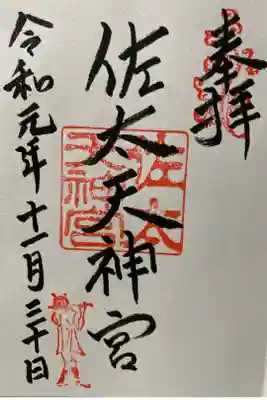 奉拝
佐太天神宮
令和元年十一月三十日
佐太天神宮